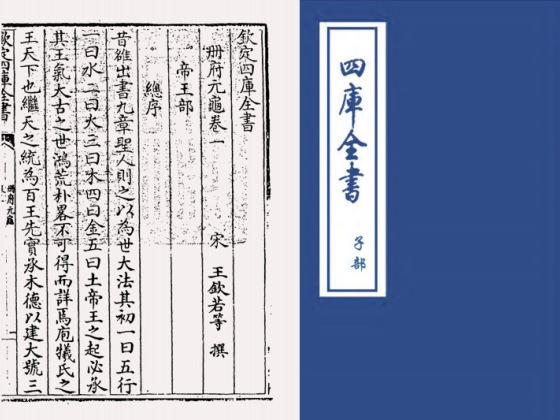 欽定四庫全書
冊府元龜卷一 宋 王欽若等 撰
帝王部
總序
昔雒出書九章聖人則之以為世大法其初一曰五行
一曰水二曰火三曰木四曰金五曰土帝王之起必承
其王氣大古之世鴻荒朴畧不可得而詳焉庖犧氏之
王天下也繼天之統為百王先實承木德以建大號三
欽定四庫全書
冊府元龜
四庫全書
子部